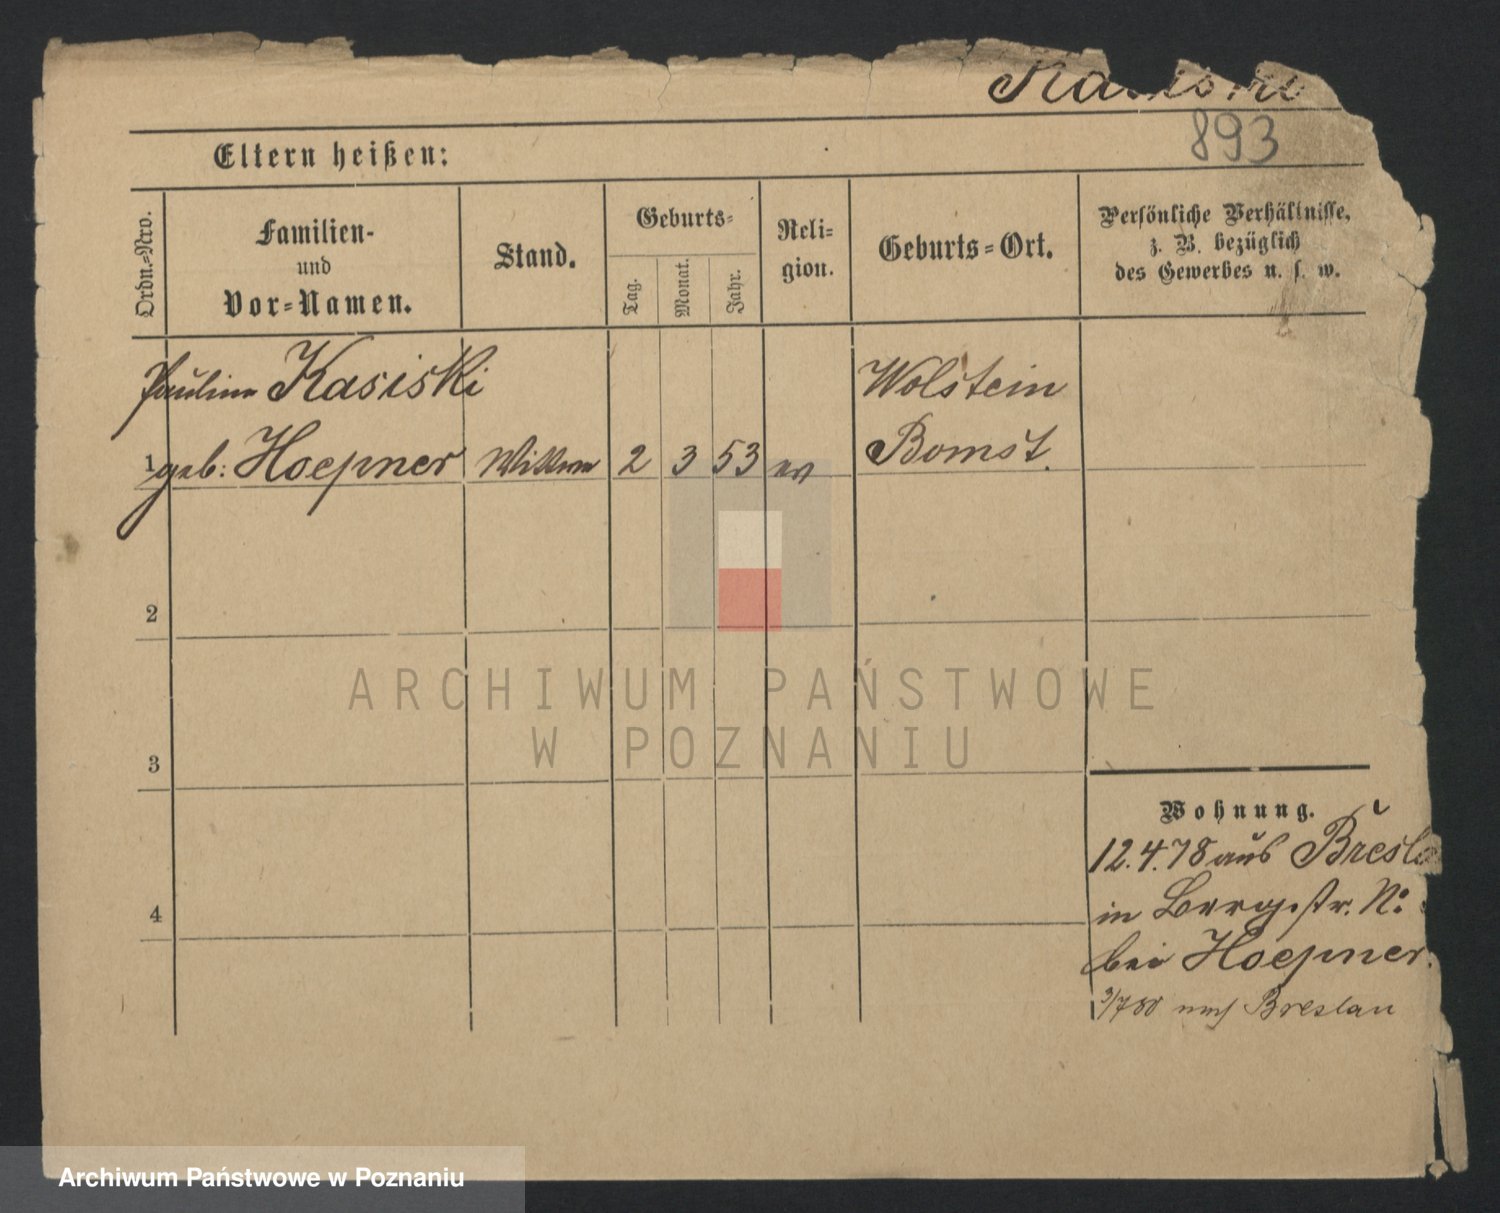 Kasiski
893
Eltern heißen:
Ordn.-Nro.
Familien-
und
Vor-Namen.
Stand.
Geburts-
Tag.
Monat.
Jahr.
Reli-
gion.
Geburts-Ort.
Persönliche Verhältnisse,
z. B. bezüglich
des Gewerbes u. s. w.
Pauline Kasiski
1 geb: Hoepner Wittwe 2 3 53 ev
Wolstein
Bomst.
2
3
4
Wohnung.
12.4.78 aus Breslau
in Bergstr. No
bei Hoepner.
3/7 80 nach Breslau
ARCHIWUM PAŃSTWOWE
W POZNANIU
Archiwum Państwowe w Poznaniu